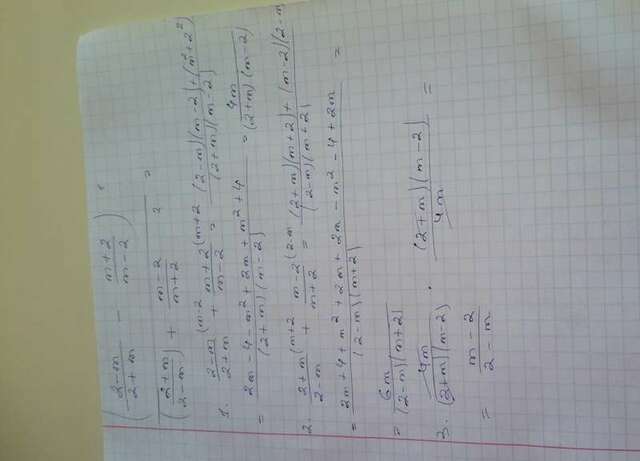 ( (2-m)/(2+m) - (m+2)/(m-2) ) :
( (2+m)/(2-m) + (m-2)/(m+2) ) =
1. (2-m)/(2+m) (m-2 + (m+2)/(m-2) (m+2 = ((2-m)(m-2)+(m²+2²))/((2+m)(m-2))
= (2m-4-m²+2m+m²+4)/((2+m)(m-2)) = 4m/((2+m)(m-2))
2. (2+m)/(2-m) (m+2 + (m-2)/(m+2) (2-m = ((2+m)(m+2)+(m-2)(2-m)/((2-m)(m+2))
= (2m+4+m²+2m+2m-m²-4+2m)/((2-m)(m+2)) =
= 6m/((2-m)(m+2))
3. 4m/((2+m)(m-2)) · ((2+m)(m-2))/4m =
= (m-2)/(2-m)